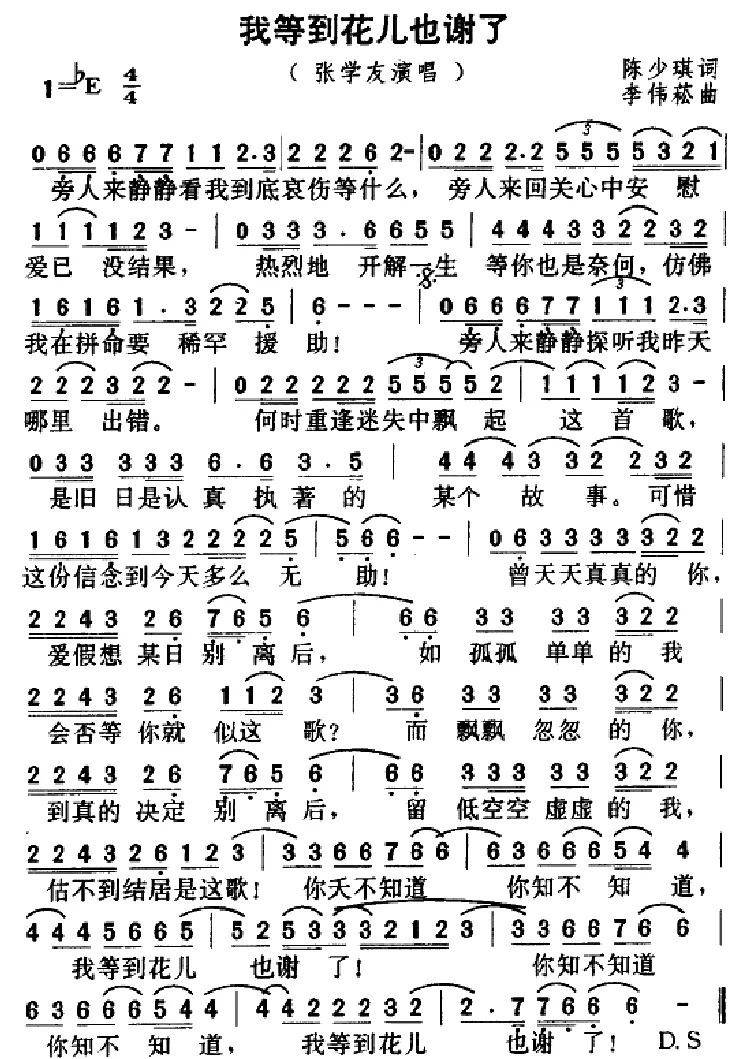 我等到花儿也谢了
（张学友演唱）
陈少琪词
1=♭E 4/4
李伟菘曲
0 6 6 6 6 7 7 1 1 2·3 | 2 2 2 6 2- | 0 2 2 2 2·2 5 5 5 5 5 3 2 1
旁人来静静看我到底哀伤等什么，旁人来回关心中安慰
1 1 1 1 2 3 - | 0 3 3 3·6 6 5 5 | 4 4 4 3 3 2 2 3 2 |
爱已没结果，热烈地开解一生等你也是奈何，仿佛
1 6 1 6 1·3 2 2 5 | 6 - - - | 0 6 6 6 6 7 7 1 1 1 2·3
我在拼命要稀罕援助！旁人来静静探听我昨天
2 2 2 3 2 2 - | 0 2 2 2 2 2 5 5 5 5 5 2 | 1 1 1 1 2 3 - |
哪里出错。何时重逢迷失中飘起这首歌，
0 3 3 3 3 3 6·6 3·5 | 4 4 4 3 3 2 2 3 2 |
是旧日是认真执著的某个故事。可惜
1 6 1 6 1 3 2 2 2 2 5 | 5 6 6 - - | 0 6 3 3 3 3 3 2 2
这份信念到今天多么无助！曾天天真真的你，
2 2 4 3 2 6 7 6 5 6 | 6 6 3 3 3 3 3 2 2 |
爱假想某日别离后，如孤孤单单的我
2 2 4 3 2 6 1 1 2 3 | 3 6 3 3 3 3 3 2 2 |
会否等你就似这歌？而飘飘忽忽的你，
2 2 4 3 2 6 7 6 5 6 | 6 6 3 3 3 3 3 3 2 2 |
到真的决定别离后，留低空空虚虚的我，
2 2 4 3 2 6 1 2 3 | 3 3 6 6 7 6 6 | 6 3 6 6 6 5 4 4
估不到结居是这歌！你天不知道你知不知道，
4 4 4 5 6 6 5 | 5 2 5 3 3 3 2 1 2 3 | 3 3 6 6 7 6 6
我等到花儿也谢了！你知不知道
6 3 6 6 6 5 4 4 | 4 4 2 2 2 3 2 | 2·7 7 6 6 6 - ‖
你知不知道，我等到花儿也谢了！D.S